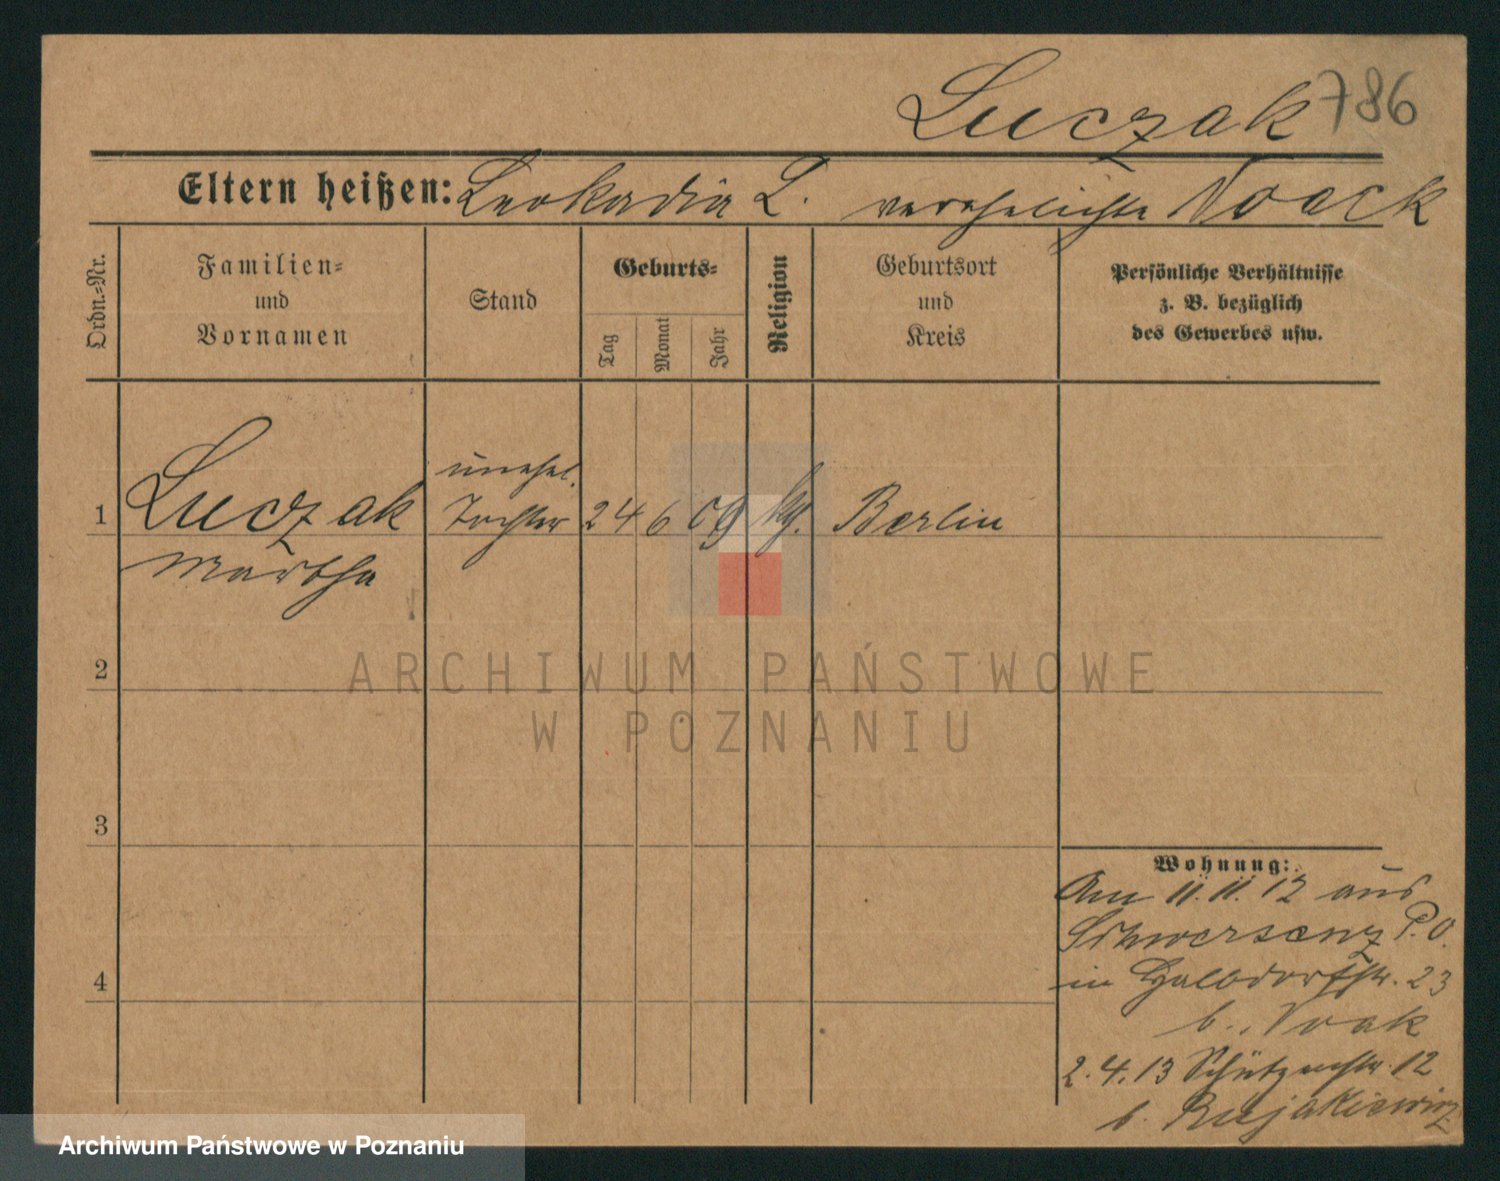 Luczak 786
Eltern heißen: Leokadia L. verehelichte Noack
Ordn.-Nr.
Familien-
und
Vornamen
Stand
Geburts-
Tag
Monat
Jahr
Religion
Geburtsort
und
Kreis
Persönliche Verhältnisse
z. B. bezüglich
des Gewerbes usw.
1 Luczak
Martha
unehel.
Tochter
24 6 09 kth. Berlin
2
3
4
Wohnung:
Am 11.11.12 aus
Schwersenz P.O.
in Halbdorfstr. 23
b. Noak
2.4.13 Schützenstr. 12
b. Bujakiewicz
ARCHIWUM PAŃSTWOWE
W POZNANIU
Archiwum Państwowe w Poznaniu